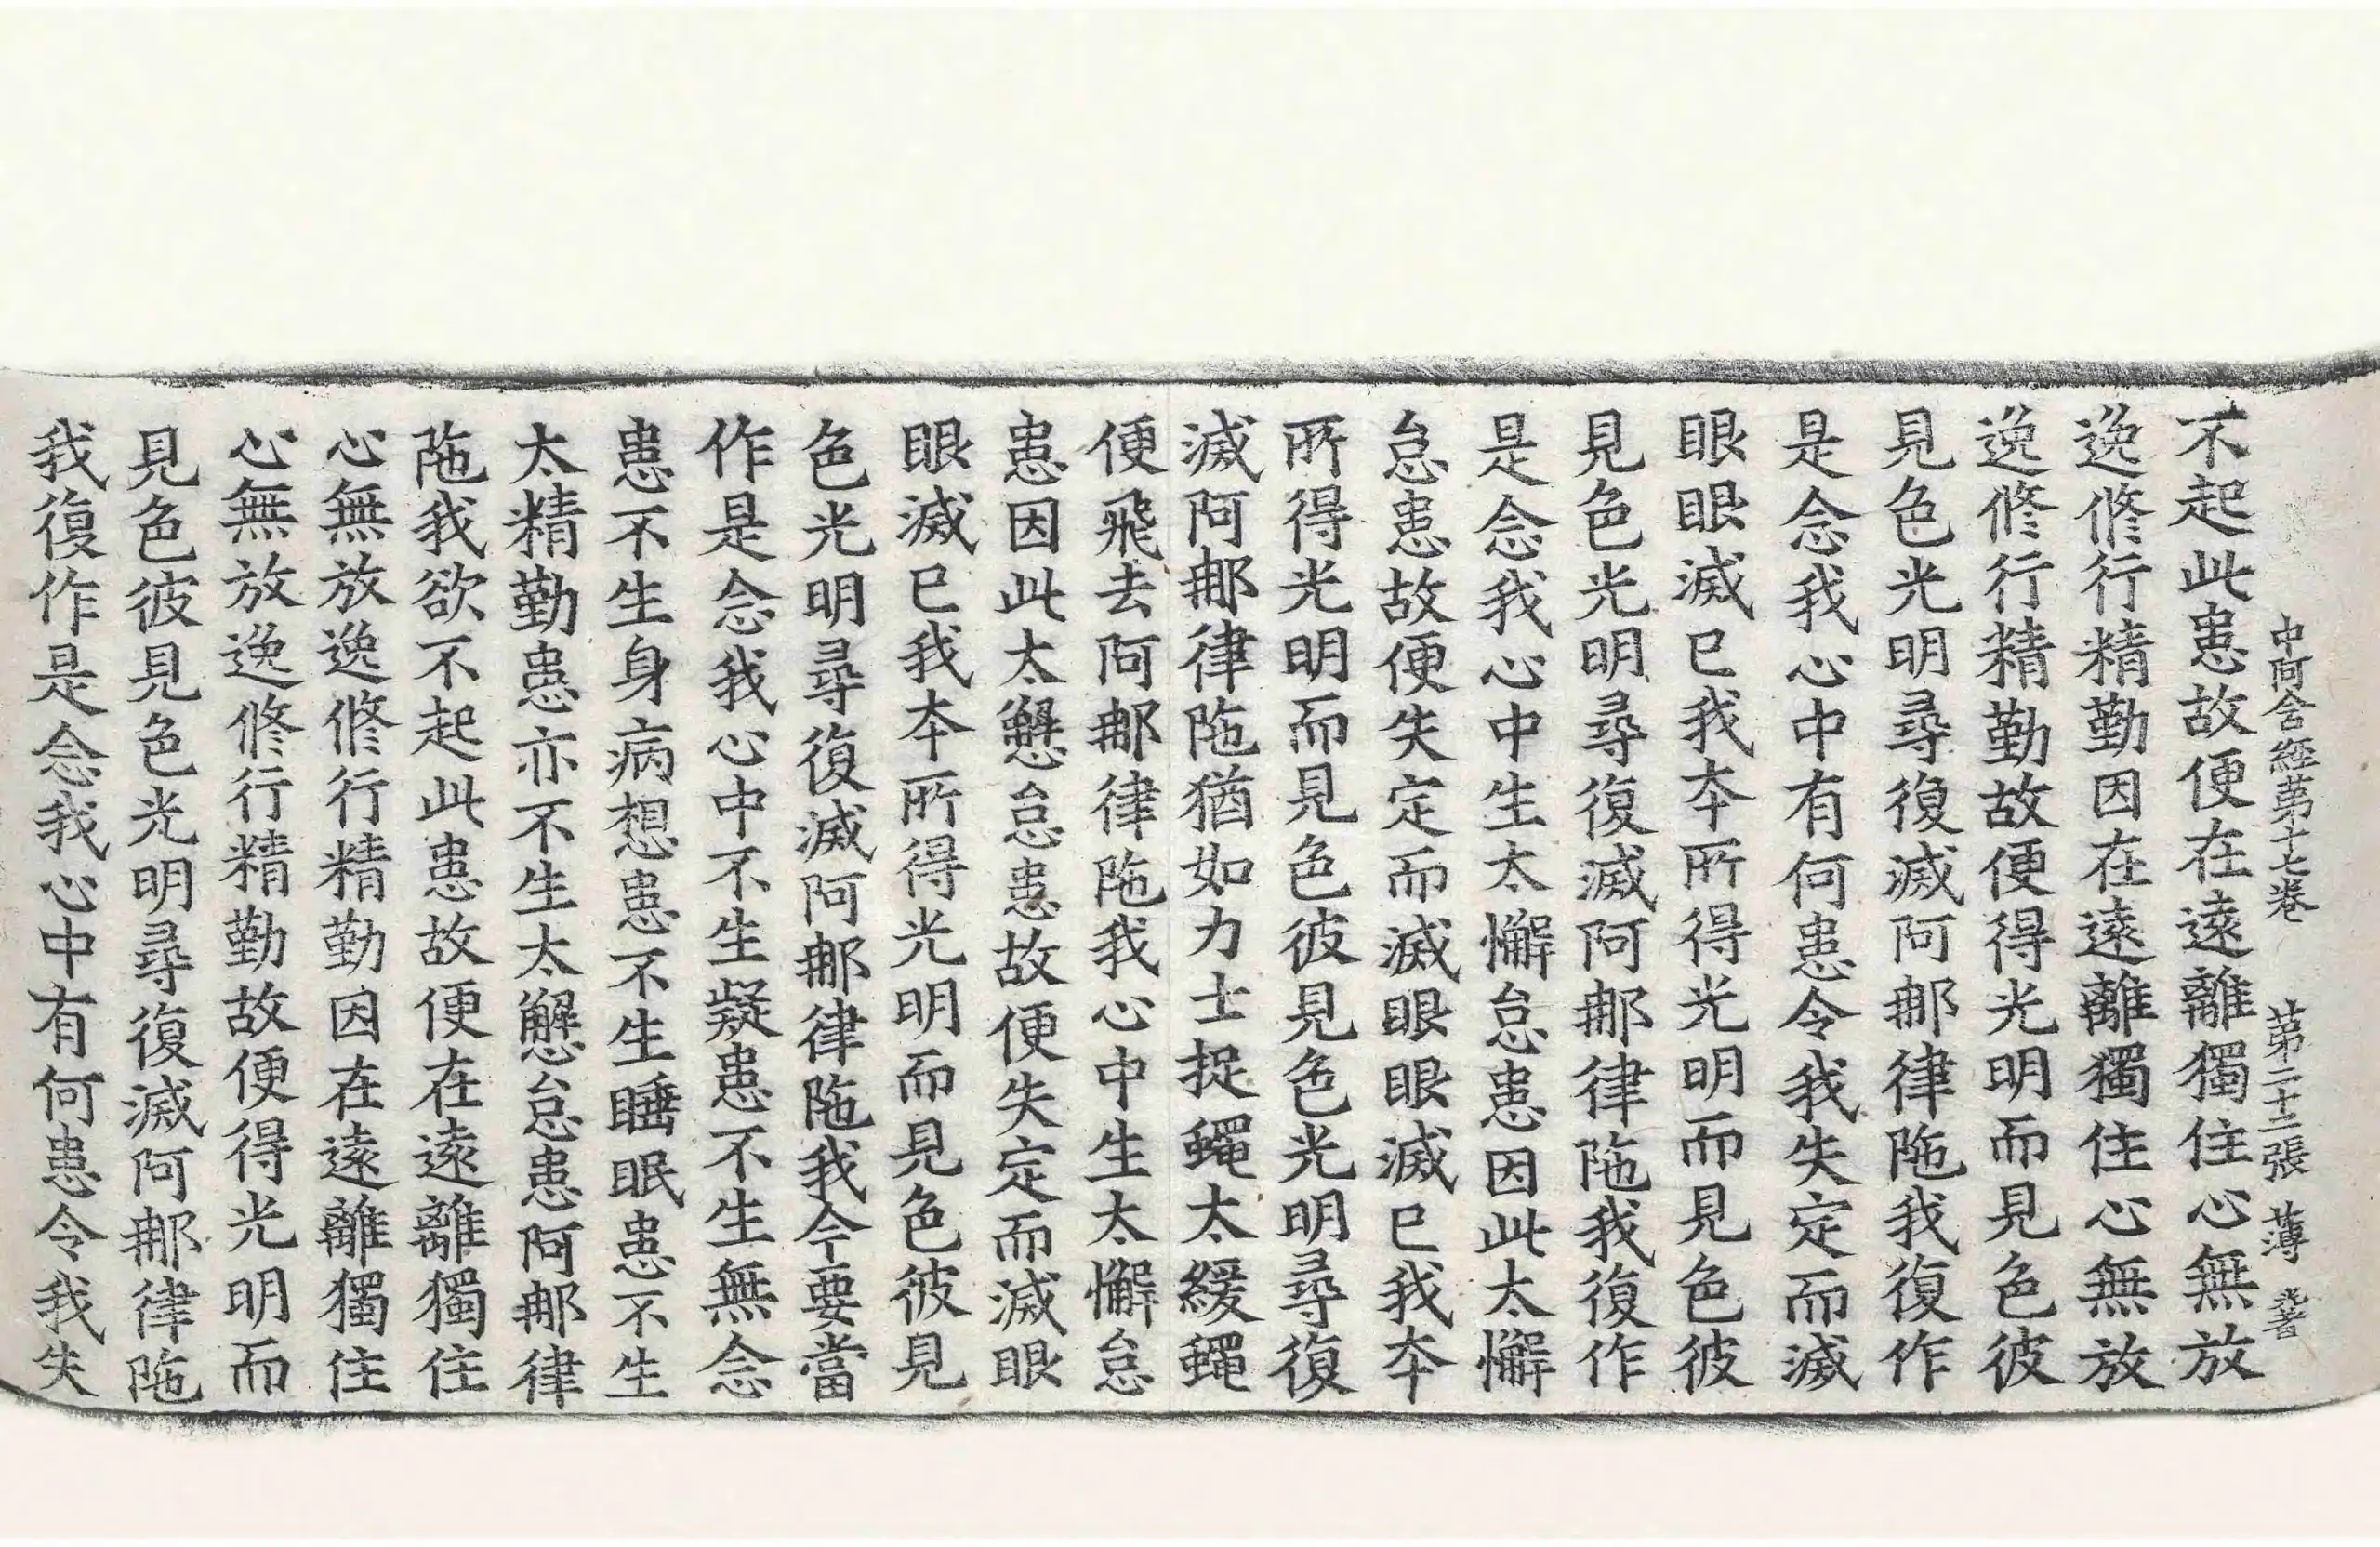 中阿含經第十七卷　第二十二張　薄
不起此患故便在遠離獨住心無放
逸修行精勤因在遠離獨住心無放
逸修行精勤故便得光明而見色彼
見色光明尋復滅阿那律陁我復作
是念我心中有何患令我失定而滅
眼眼滅已我本所得光明而見色彼
見色光明尋復滅阿那律陁我復作
是念我心中生太懈怠患因此太懈
怠患故便失定而滅眼眼滅已我本
所得光明而見色彼見色光明尋復
滅阿那律陁猶如力士捉蠅太緩蠅
便飛去阿那律陁我心中生太懈怠
患因此太懈怠患故便失定而滅眼
眼滅已我本所得光明而見色彼見
色光明尋復滅阿那律陁我今要當
作是念我心中不生疑患不生無念
患不生身病想患不生睡眠患不生
太精勤患亦不生太懈怠患阿那律
陁我欲不起此患故便在遠離獨住
心無放逸修行精勤因在遠離獨住
心無放逸修行精勤故便得光明而
見色彼見色光明尋復滅阿那律陁
我復作是念我心中有何患令我失